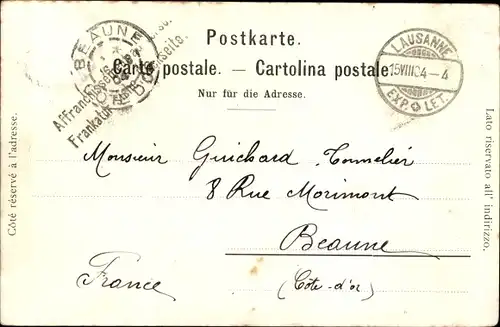 Postkarte.
Carte postale. — Cartolina postale.
Nur für die Adresse.
BEAUNE
CÔTE D'OR
Affranchisseme
Frankatur
seite.
LAUSANNE
15 VIII 04 – 4
EXP. LET.
Côté réservé à l'adresse.
Lato riservato all' indirizzo.
Monsieur Guichard Tonnelier
8 Rue Morimont
Beaune
France
(Côte-d'or)